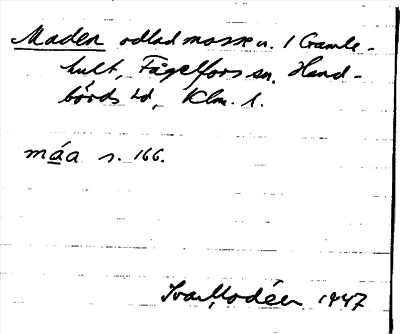 Maden odlad mosse u. 1 Gamle-
hult, Fågelfors sn, Hand-
börds hd, Klm. l.
máa s. 166.
Ivar Modéer 1947